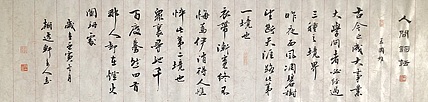 人間詞話
王國維
古今之成大事業
大學問者必經過
三種之境界
昨夜西風凋碧樹
獨上高樓
望盡天涯路此第
一境也
衣帶漸寬終不
悔為伊消得人憔
悴此第二境也
眾裏尋他千
百度驀然回首
那人却在燈火
闌珊處